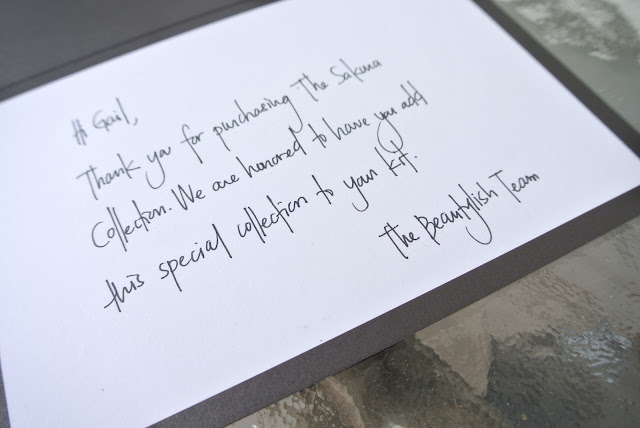 Hi Gail,
Thank you for purchasing The Sakura
Collection. We are honored to have you add
this special collection to your kit.
The Beautylish Team